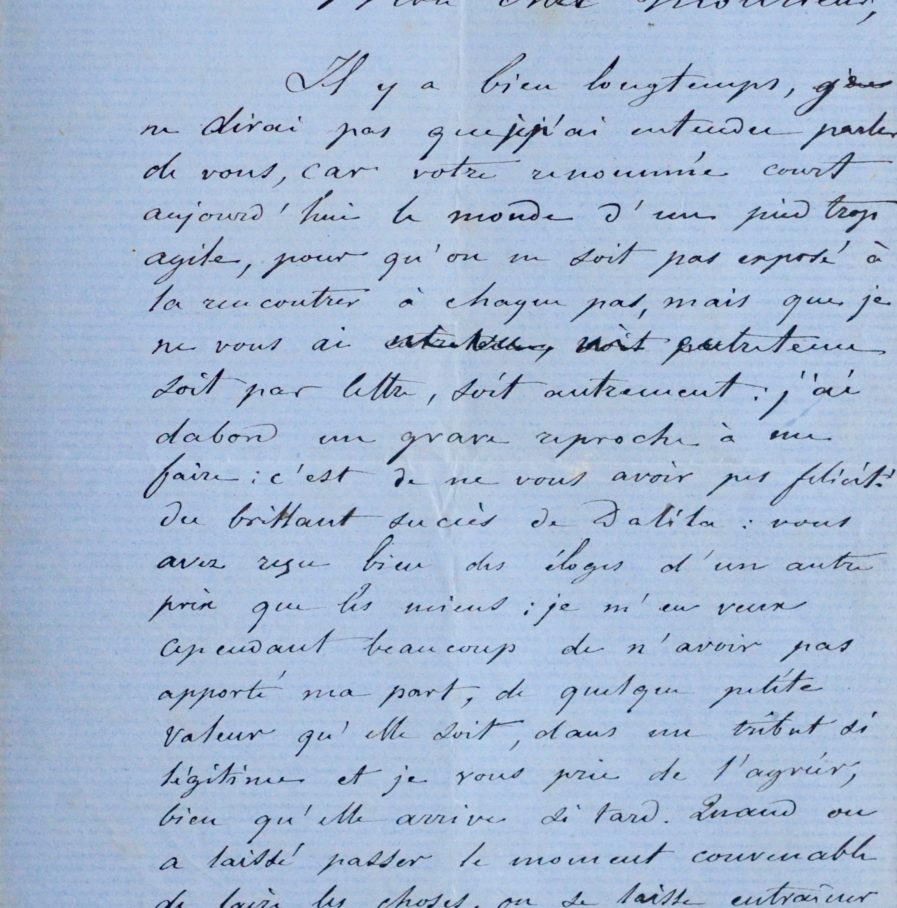 Mon cher Monsieur,
Il y a bien longtemps, je
ne dirai pas que j'ai entendu parler
de vous, car votre renommée court
aujourd'hui le monde d'un pied trop
agile, pour qu'on ne soit pas exposé à
la rencontrer à chaque pas, mais que je
ne vous ai entretenu
soit par lettre, soit autrement : j'ai
dabord un grave reproche à me
faire : c'est de ne vous avoir pas felicité
du brillant succès de Dalila : vous
avez reçu bien des éloges d'un autre
prix que les miens ; je m'en veux
cependant beaucoup de n'avoir pas
apporté ma part, de quelque petite
valeur qu'elle soit, dans un tribut si
légitime et je vous prie de l'agréer,
bien qu'elle arrive si tard. Quand on
a laissé passer le moment convenable
de faire les choses, on se laisse entraîner